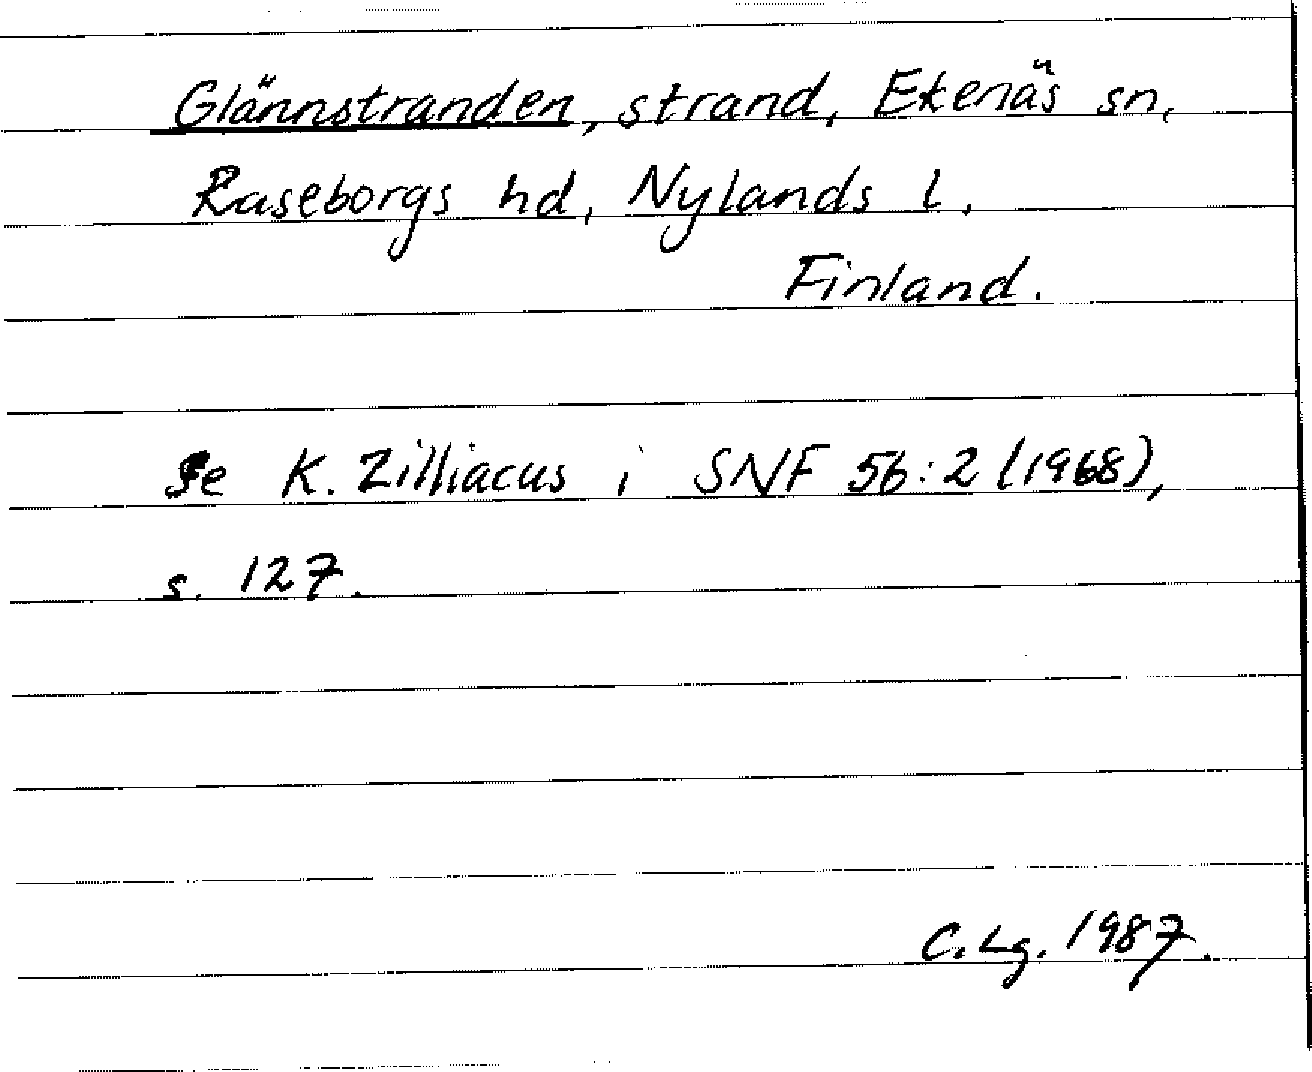 Glännstranden, strand, Ekenäs sn,
Raseborgs hd, Nylands l,
Finland.
Se K. Zilliacus i SNF 56:2 (1968),
s. 127.
C. Lg. 1987.